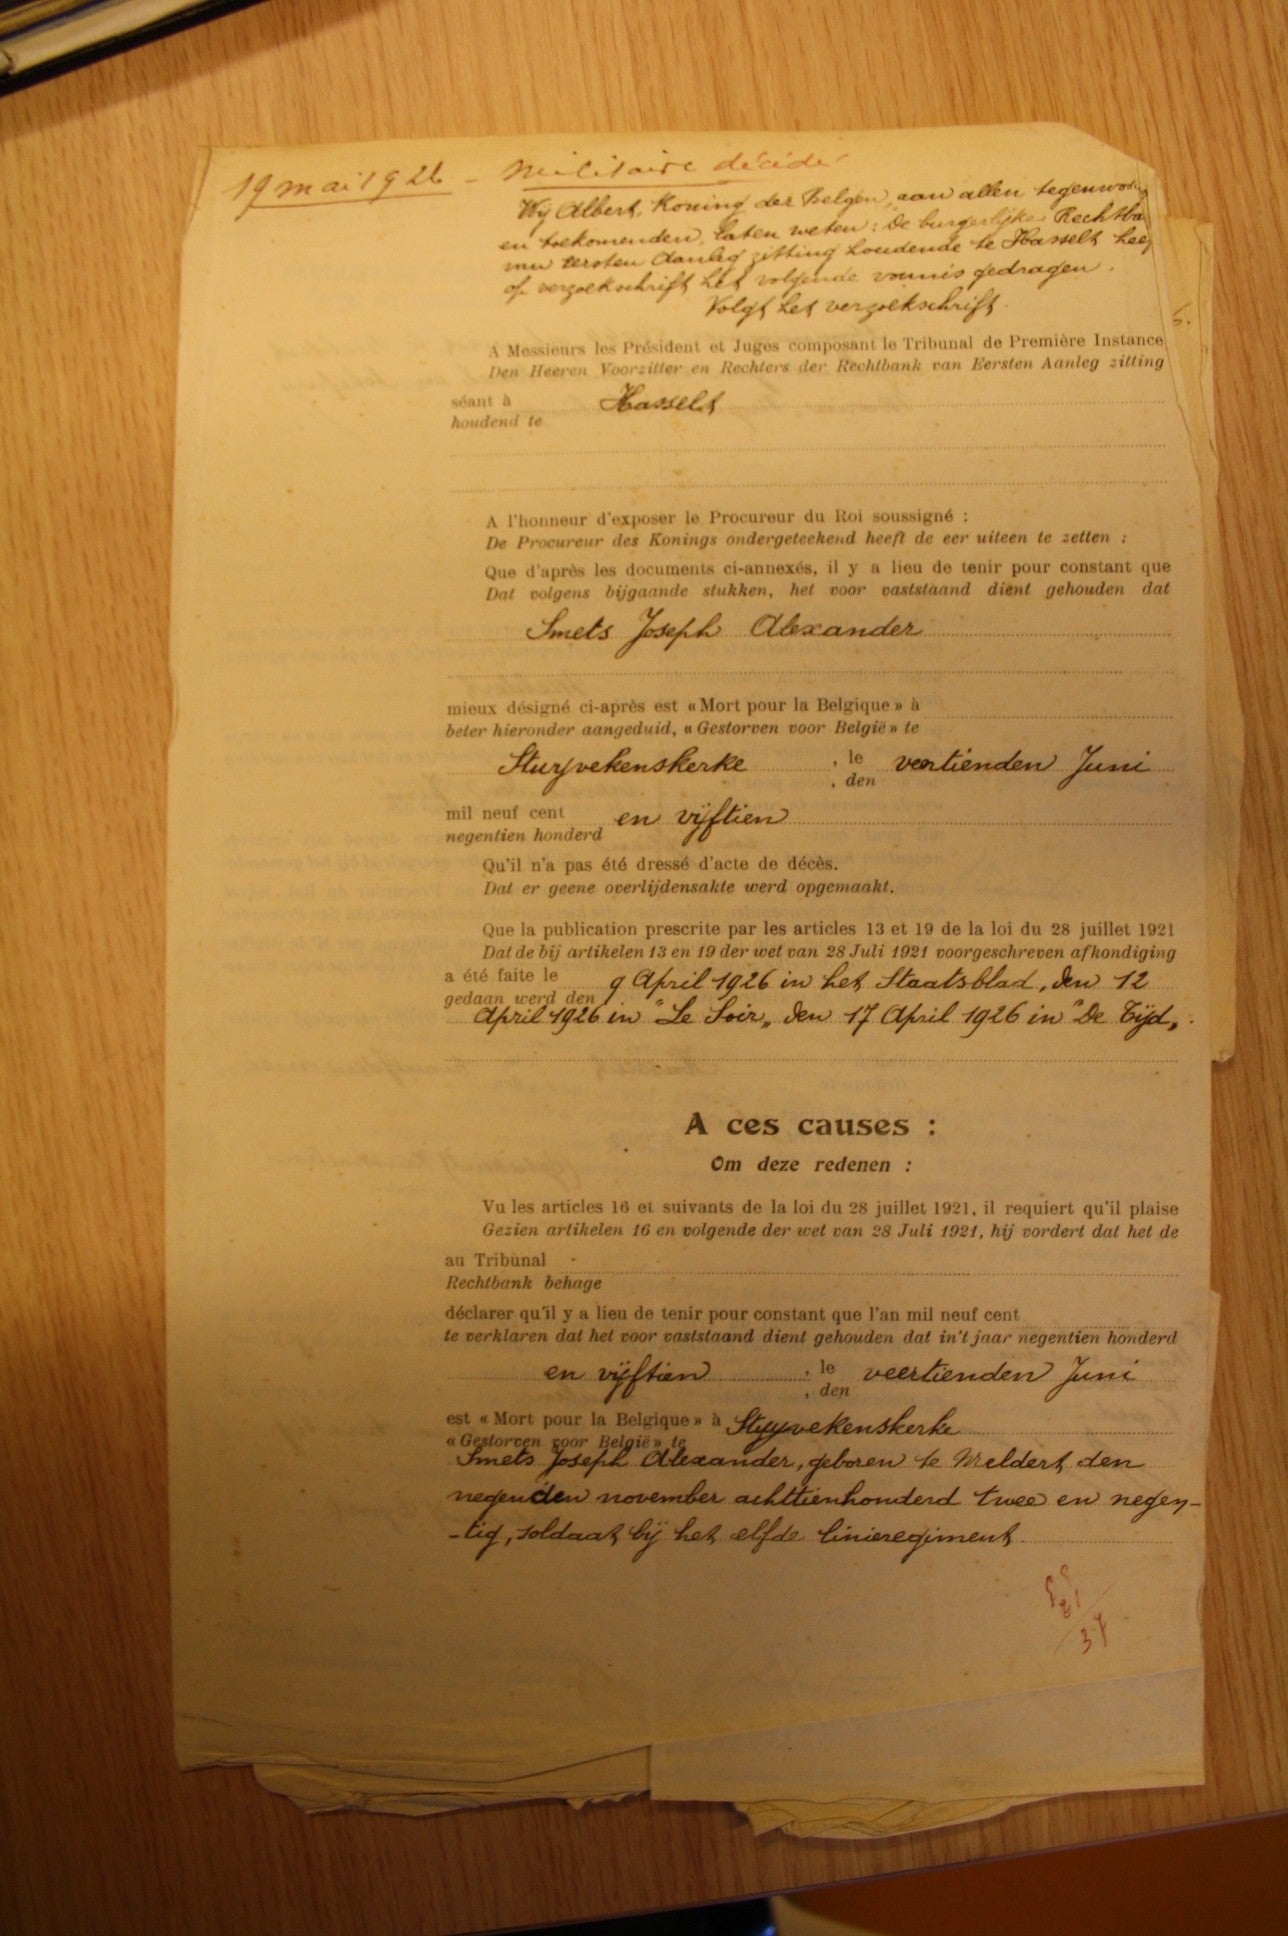 19 mai 1926 - militaire décédé
Wij Albert, Koning der Belgen, aan allen tegenwoordig
en toekomenden, laten weten: De burgerlijke Rechtba
van eersten Aanleg zitting houdende te Hasselt hee
op verzoekschrift het volgende vonnis gedragen.
Volgt het verzoekschrift.
A Messieurs les Président et Juges composant le Tribunal de Première Instance
Den Heeren Voorzitter en Rechters der Rechtbank van Eersten Aanleg zitting
séant à Hasselt
houdend te
A l'honneur d'exposer le Procureur du Roi soussigné :
De Procureur des Konings ondergeteekend heeft de eer uiteen te zetten :
Que d'après les documents ci-annexés, il y a lieu de tenir pour constant que
Dat volgens bijgaande stukken, het voor vaststaand dient gehouden dat
Smets Joseph Alexander
mieux désigné ci-après est « Mort pour la Belgique » à
beter hieronder aangeduid, « Gestorven voor België » te
Stuyvekenskerke , le veertienden Juni
, den
mil neuf cent en vijftien
negentien honderd
Qu'il n'a pas été dressé d'acte de décès.
Dat er geene overlijdensakte werd opgemaakt.
Que la publication prescrite par les articles 13 et 19 de la loi du 28 juillet 1921
Dat de bij artikelen 13 en 19 der wet van 28 Juli 1921 voorgeschreven afkondiging
a été faite le 9 April 1926 in het Staatsblad, den 12
gedaan werd den
April 1926 in "Le Soir„ den 17 April 1926 in "De Tijd„.
A ces causes :
Om deze redenen :
Vu les articles 16 et suivants de la loi du 28 juillet 1921, il requiert qu'il plaise
Gezien artikelen 16 en volgende der wet van 28 Juli 1921, hij vordert dat het de
au Tribunal
Rechtbank behage
déclarer qu'il y a lieu de tenir pour constant que l'an mil neuf cent
te verklaren dat het voor vaststaand dient gehouden dat in't jaar negentien honderd
en vijftien , le veertienden Juni
, den
est « Mort pour la Belgique » à Stuyvekenskerke
« Gestorven voor België » te
Smets Joseph Alexander, geboren te Meldert den
negenden november achttienhonderd twee en negen-
-tig, soldaat bij het elfde linieregiment